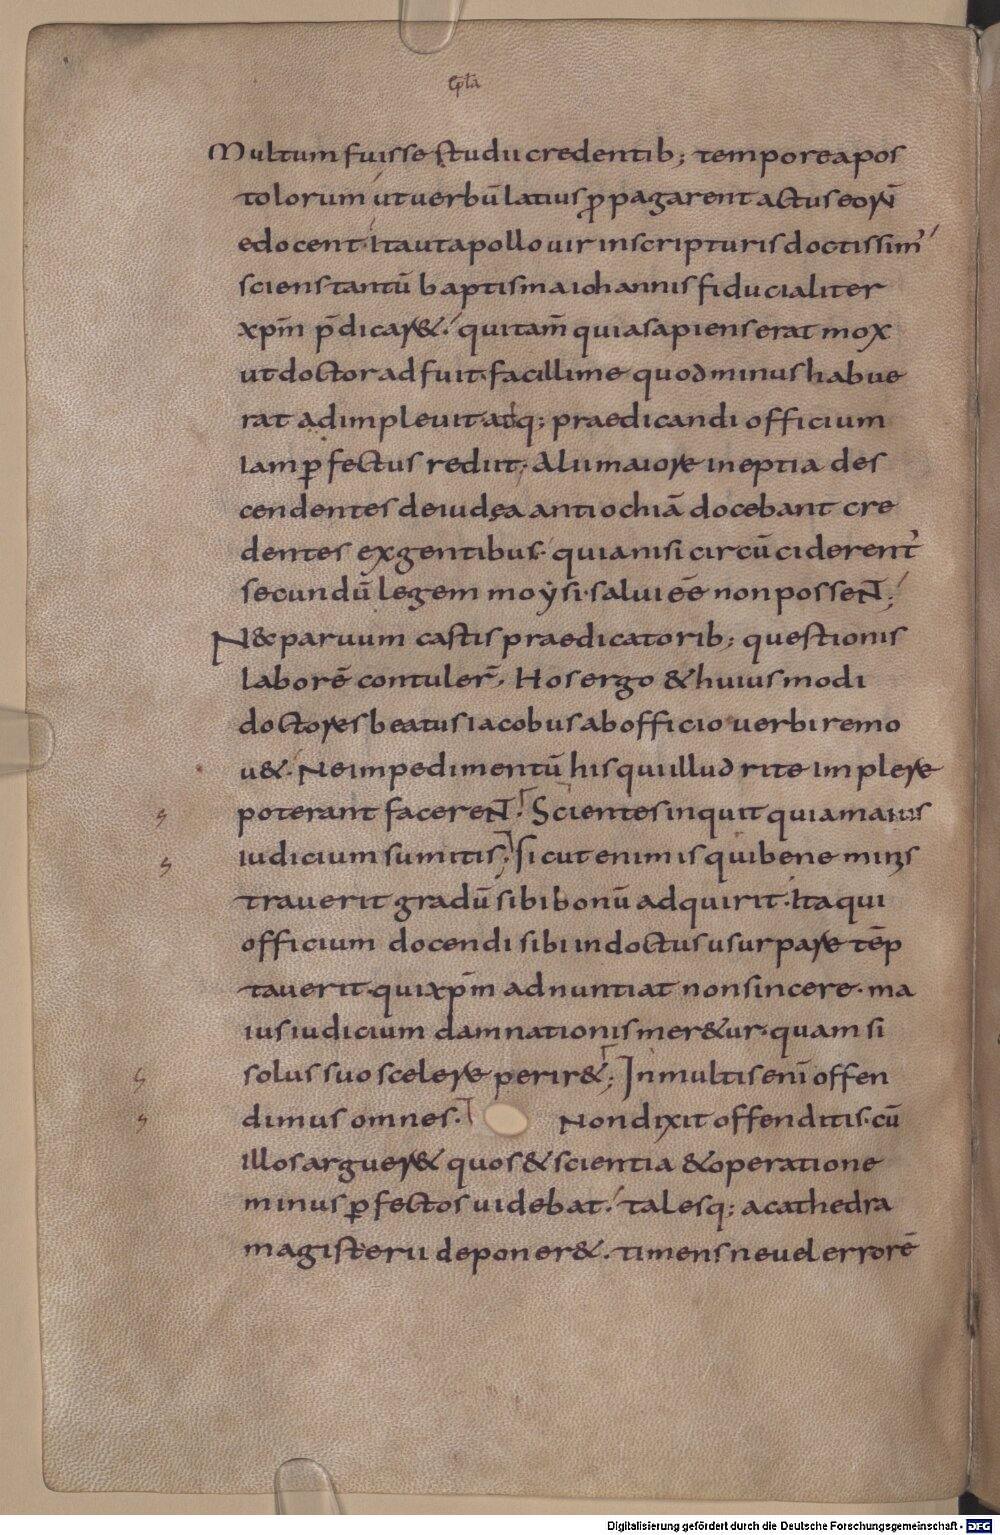 ep̄la
Multum fuisse studii credentib; tempore apos
tolorum ut uerbū latius ꝓpagarent actus eorū
edocent. Ita ut apollo uir in scripturis doctissim᾽
sciens tantū baptisma iohannis fiducialiter
xp̄m p̄dicar&. qui tam̄ quia sapiens erat mox
ut doctor adfuit. facillime quod minus habue
rat adimpleuit. atq; praedicandi officium
iam ꝑfectus rediit. Alii maiore ineptia des
cendentes de iudęa antiochiā docebant cre
dentes ex gentibus. quia nisi circūciderent᾽
secundū legem moẏsi. salui eē non possent;
N& paruum castis praedicatorib; questionis
laborē contuler̄. Hos ergo & huiusmodi
doctores beatus iacobus ab officio uerbi remo
u&. Ne impedimentū his qui illud rite implere
poterant facerent. Scientes inquit quia maius
iudicium sumitis; sicut enim is qui bene minis
trauerit gradū sibi bonū adquirit. Ita qui
officium docendi sibi indoctus usurpare tēp
tauerit. qui xp̄m adnuntiat non sincere. ma
ius iudicium damnationis mer&ur. quam si
solus suo scelere perir&; In multis eni̅ offen
dimus omnes. Non dixit offenditis. cū
illos arguer& quos & scientia & operatione
minus ꝑfectos uidebat. talesq; a cathedra
magisterii deponer&. timens ne uel errorē
Digitalisierung gefördert durch die Deutsche Forschungsgemeinschaft - DFG